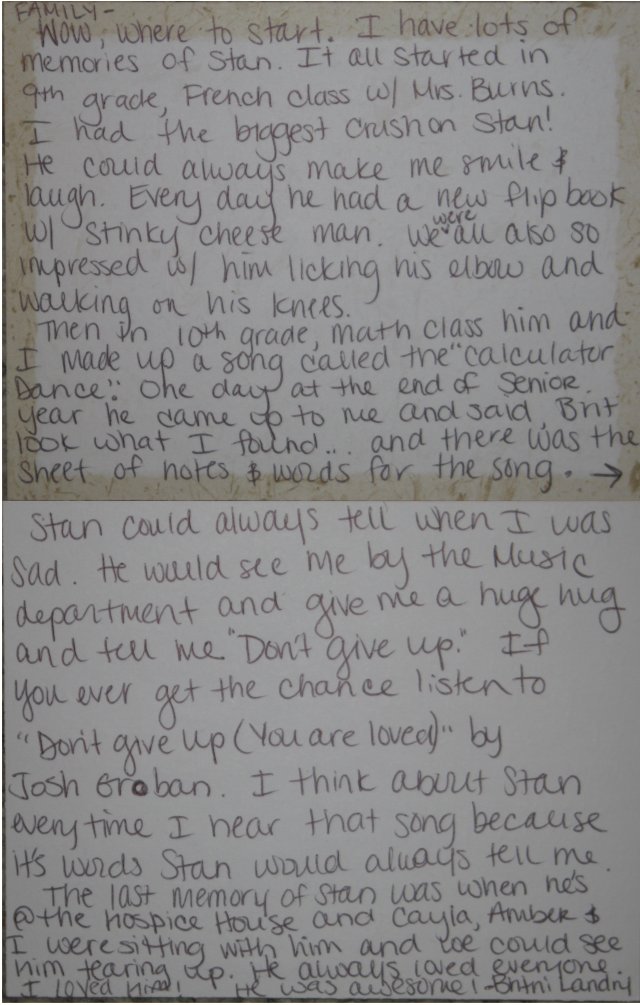 FAMILY-
Wow, where to start. I have lots of
memories of Stan. It all started in
9th grade, French class w/ Mrs. Burns.
I had the biggest crush on Stan!
He could always make me smile &
laugh. Every day he had a new flip book
w/ stinky cheese man. We were all also so
impressed w/ him licking his elbow and
walking on his knees.
Then in 10th grade, math class him and
I made up a song called the "Calculator
Dance". One day at the end of senior
year he came up to me and said, Brit
look what I found... and there was the
sheet of notes & words for the song. →
Stan could always tell when I was
sad. He would see me by the Music
department and give me a huge hug
and tell me "Don't give up." If
you ever get the chance listen to
"Don't give up (You are loved)" by
Josh Groban. I think about Stan
every time I hear that song because
it's words Stan would always tell me.
The last memory of Stan was when he's
@ the hospice House and Cayla, Amber &
I were sitting with him and we could see
him tearing up. He always loved everyone.
I loved him! He was awesome! -Britni Landry